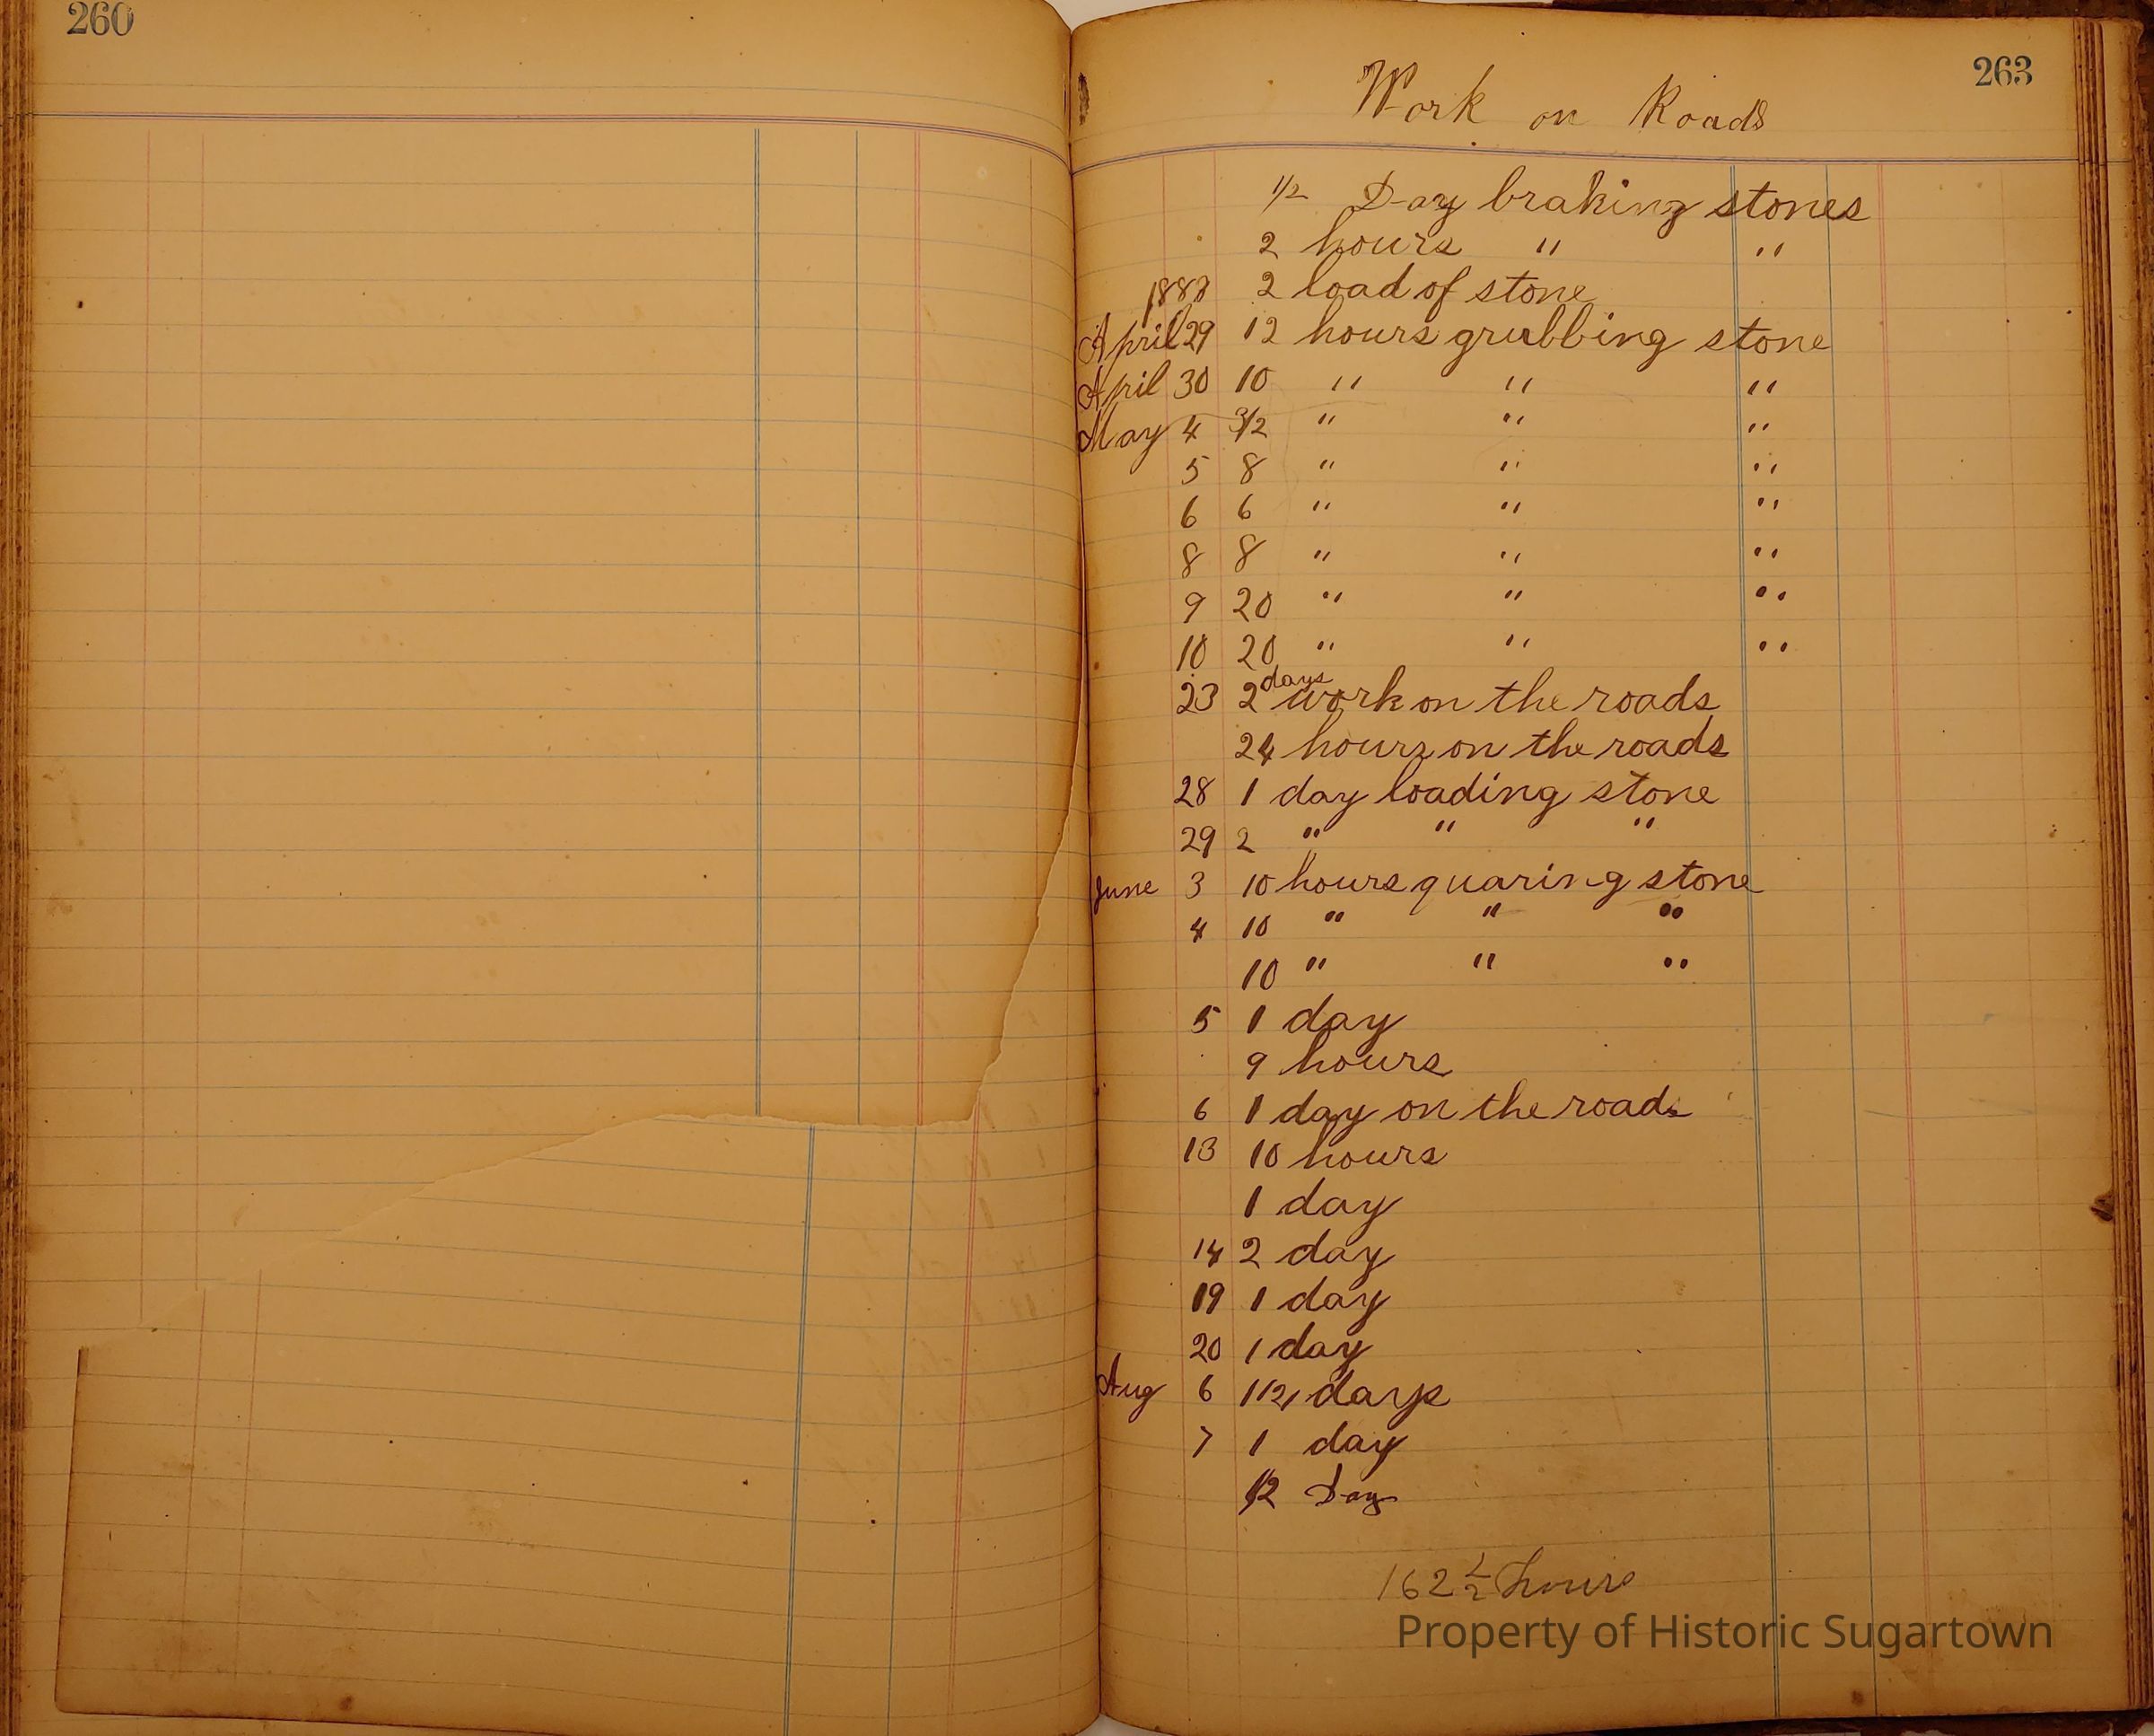 260
263
Work on Roads
1/2 Day braking stones
2 hours " "
1883 2 load of stone
April 29 12 hours grubbing stone
April 30 10 " " "
May 4 3/2 " " "
5 8 " " "
6 6 " " "
8 8 " " "
9 20 " " "
10 20 " " "
23 2 days work on the roads
24 hours on the roads
28 1 day loading stone
29 2 " " "
June 3 10 hours quaring stone
4 10 " " "
10 " " "
5 1 day
9 hours
6 1 day on the roads
13 10 hours
1 day
14 2 day
19 1 day
20 1 day
Aug 6 1 1/2 days
7 1 day
1/2 Day
162 1/2 hours
Property of Historic Sugartown